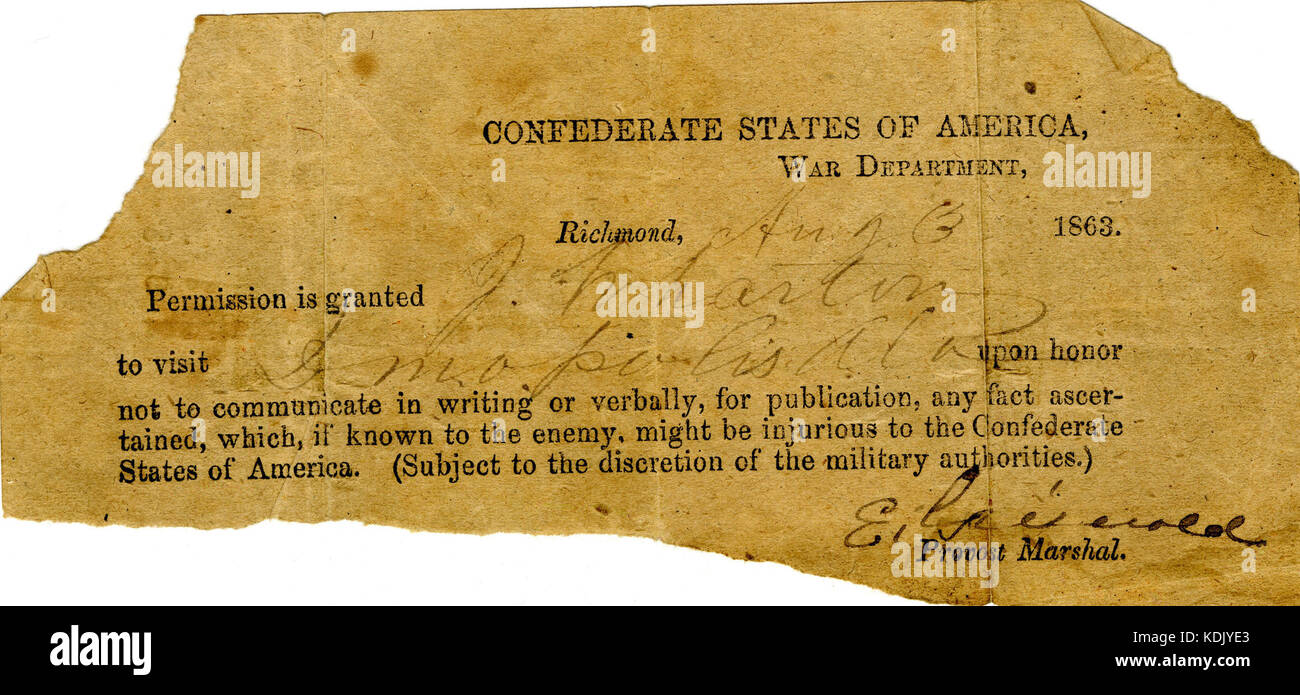 CONFEDERATE STATES OF AMERICA,
WAR DEPARTMENT,
Richmond, Aug. 3 1863.
Permission is granted J. Wharton
to visit Demopolis Ala upon honor
not to communicate in writing or verbally, for publication, any fact ascer-
tained, which, if known to the enemy, might be injurious to the Confederate
States of America. (Subject to the discretion of the military authorities.)
E. Griswold
Provost Marshal.
alamy
Image ID: KDJYE3
www.alamy.com